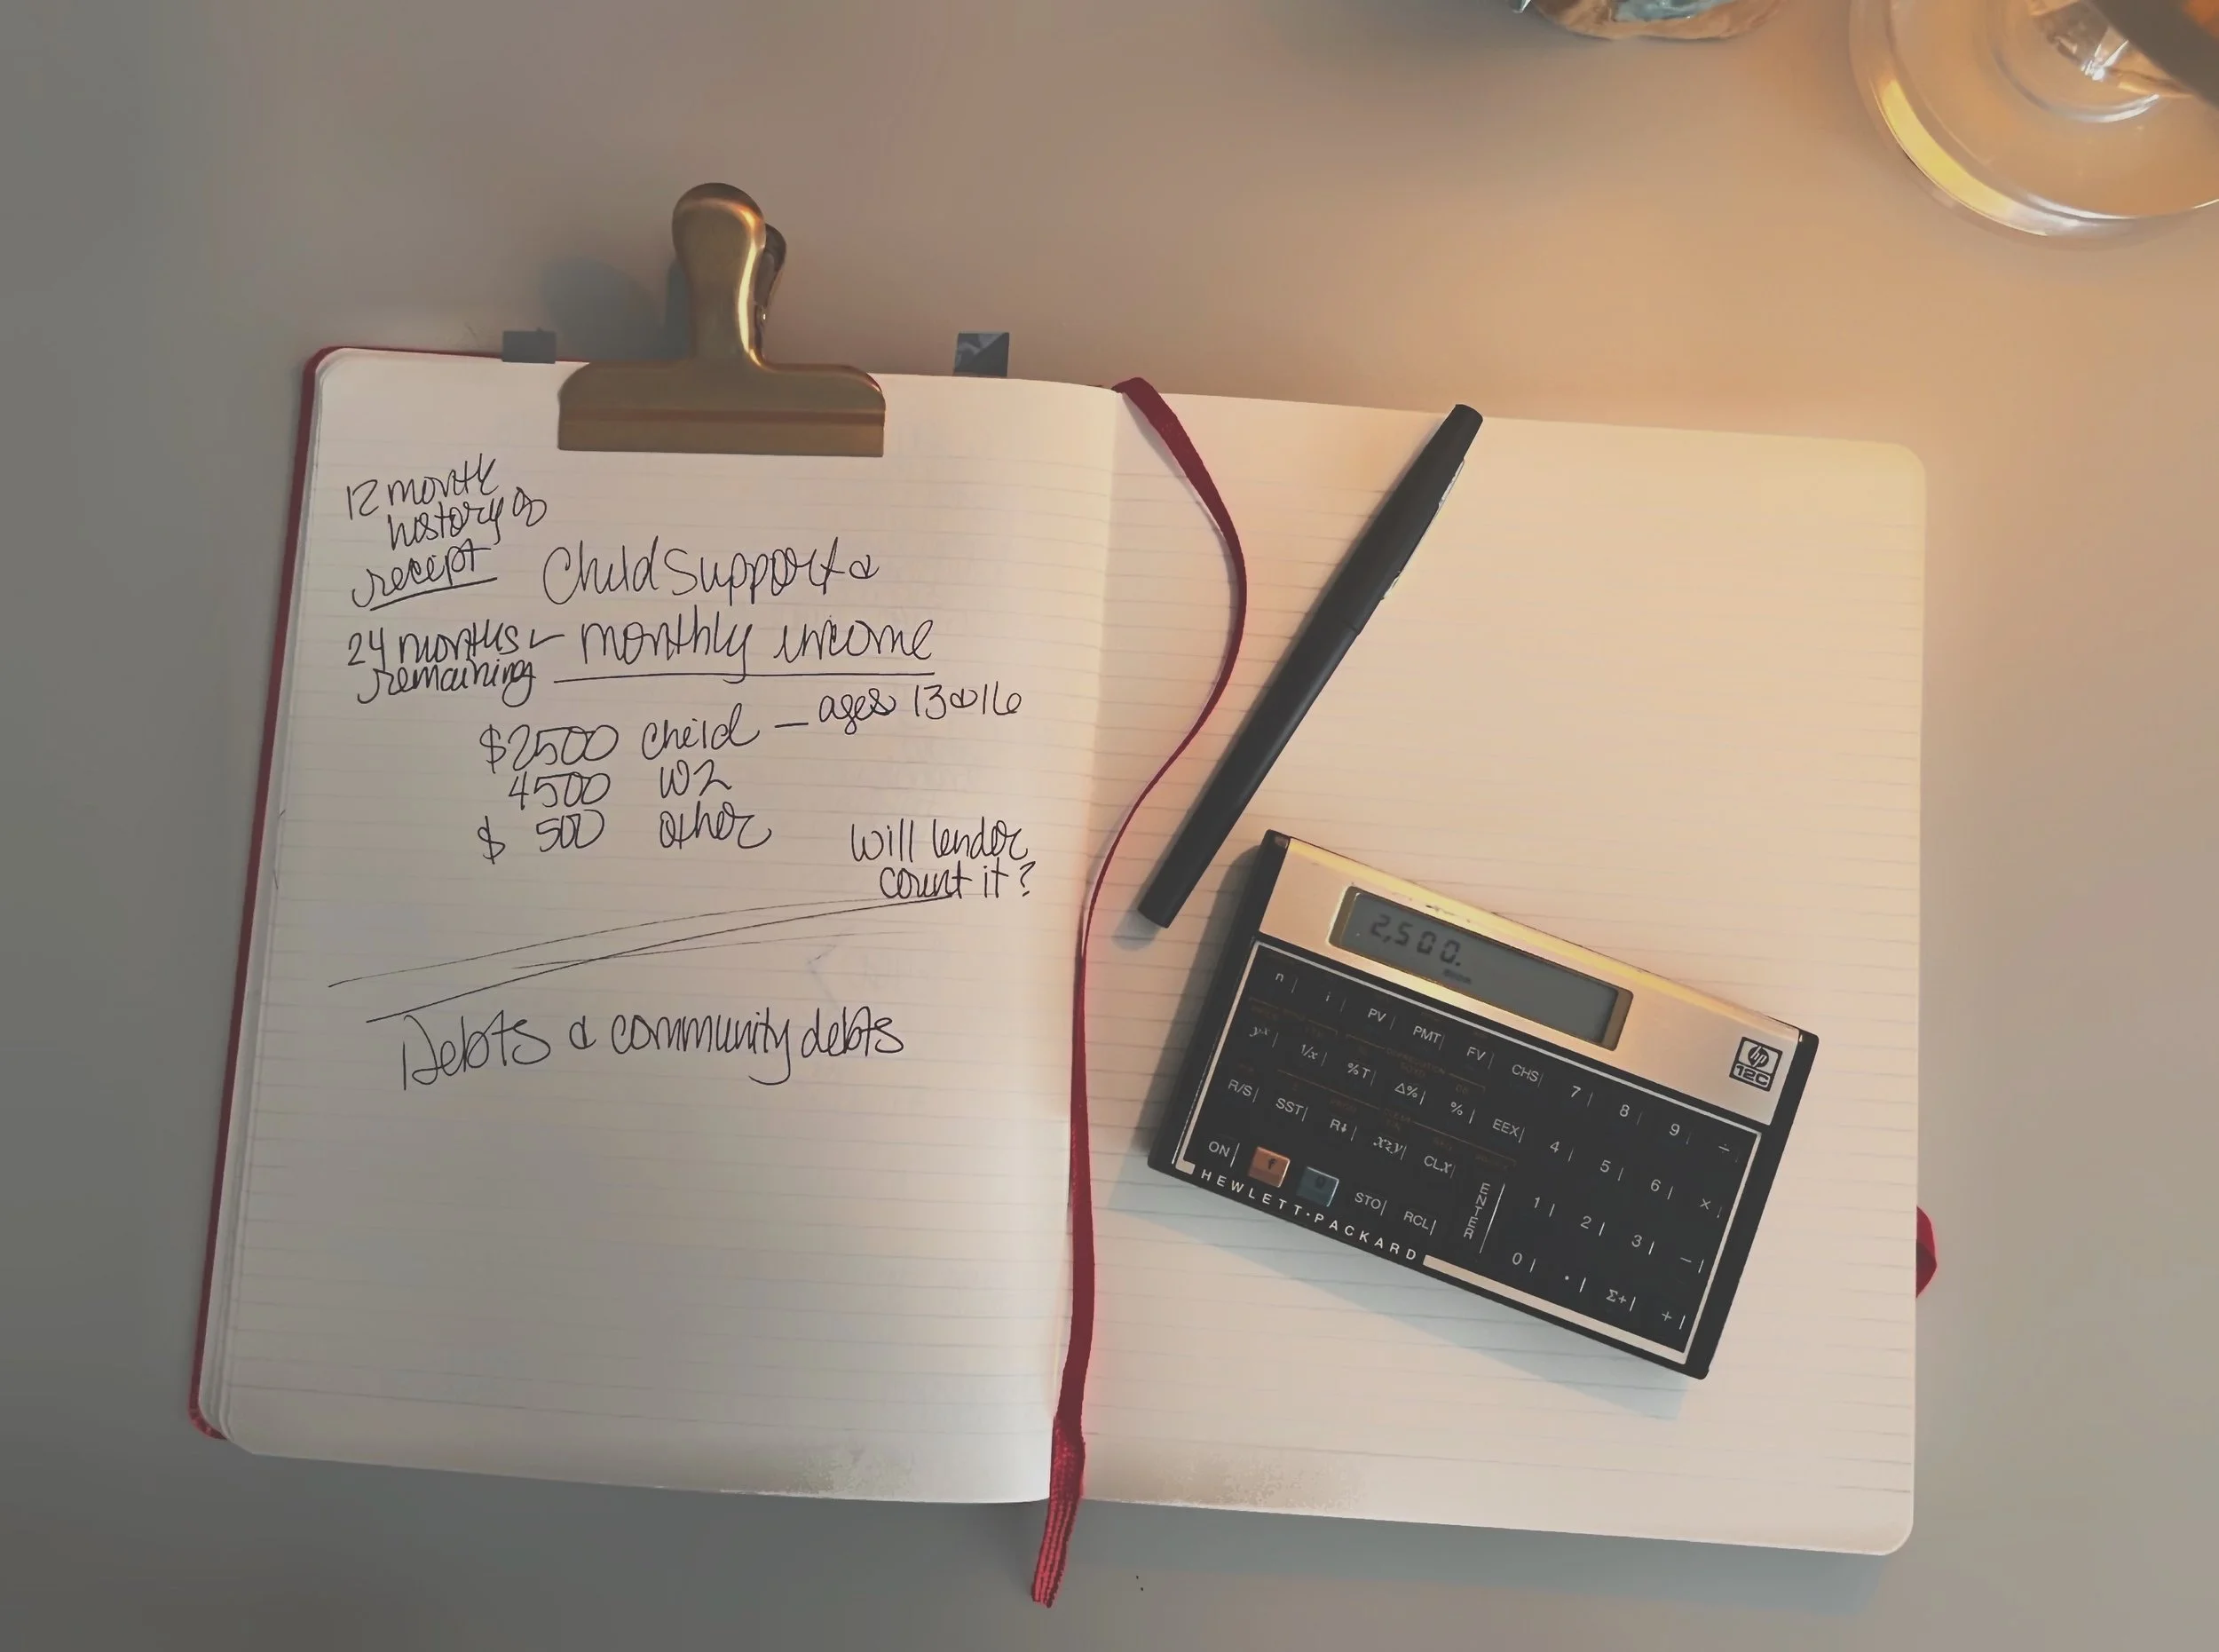 12 month
history of
receipt
Child Support &
24 months
remaining
monthly income
$2500 child — ages 13 & 16
4500 W2
$ 500 other
will lender
count it?
Debts & community debts
2,500.
hp
12C
n i PV PMT FV CHS 7 8 9 ÷
yˣ 1/x %T Δ% % EEX 4 5 6 ×
R/S SST R↓ x≷y CLx ENTER 1 2 3 −
ON f STO RCL 0 . Σ+ +
HEWLETT·PACKARD